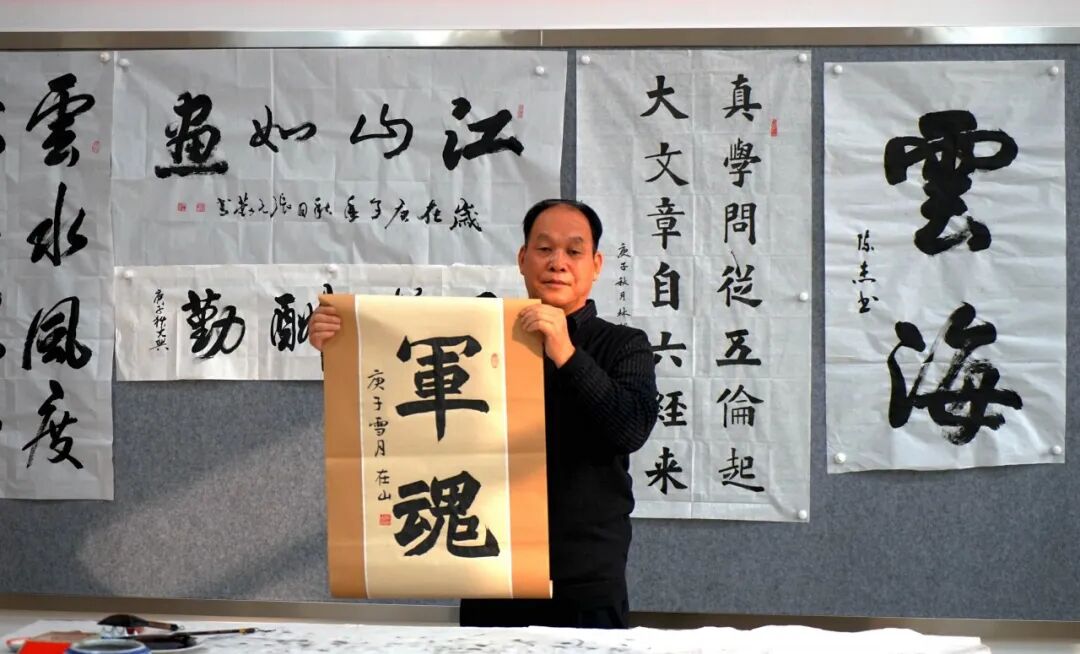 雲水風度
江山如畫
歲在庚子年秋日張
酬勤
庚子秋大興
軍魂
庚子雪月 在山
真學問從五倫起
大文章自六経来
庚子秋月林
雲海
陈杰书